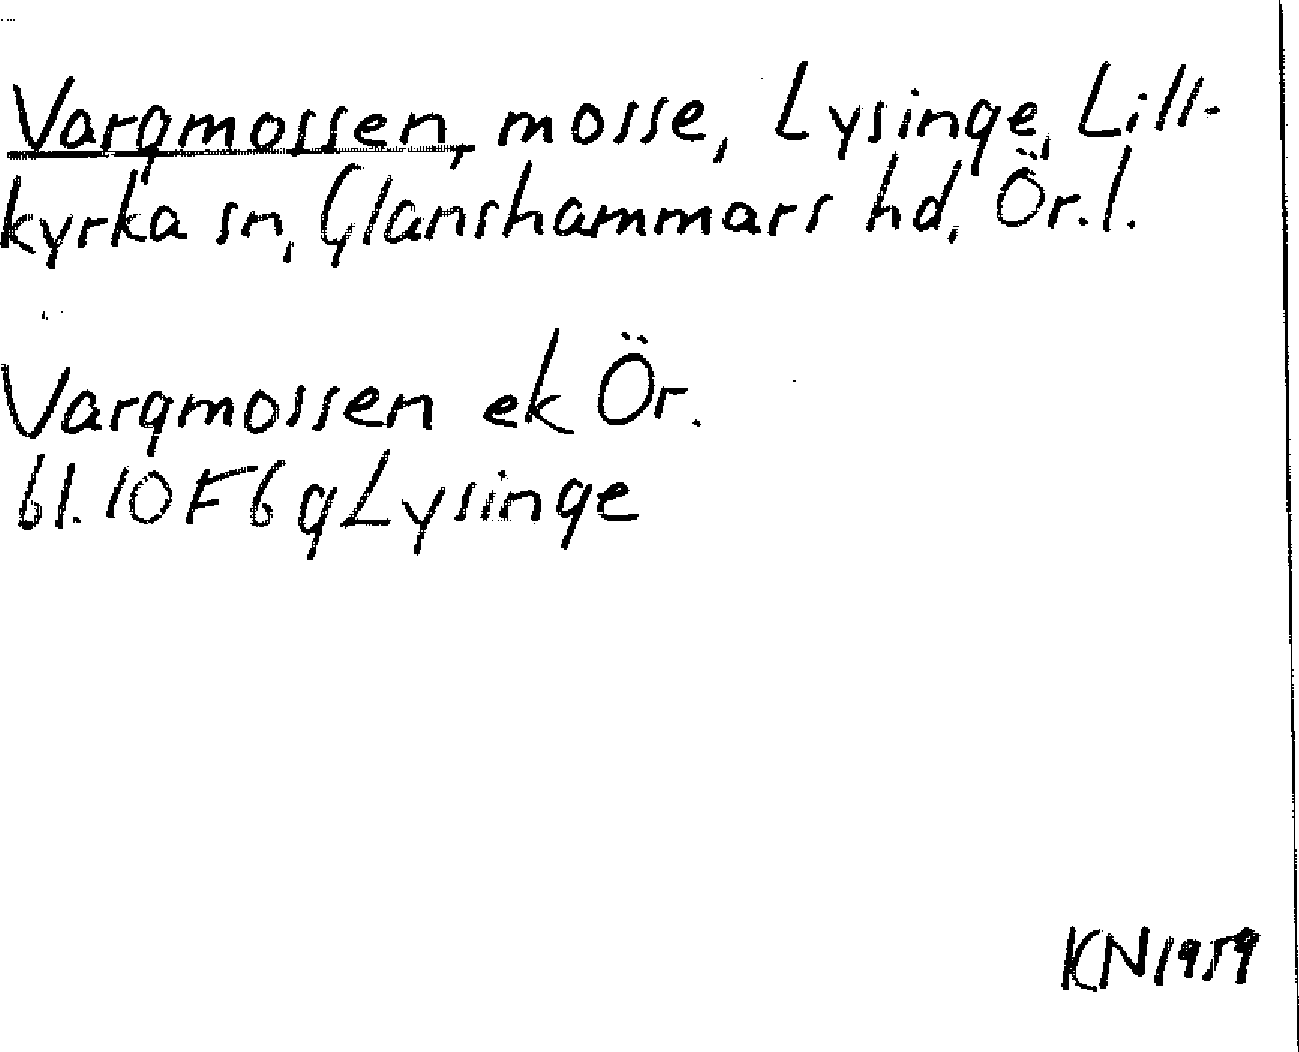 Vargmossen, mosse, Lysinge, Lill-
kyrka sn, Glanshammars hd, Ör.l.
Vargmossen ek Ör.
61.10F6g Lysinge
KN 1959